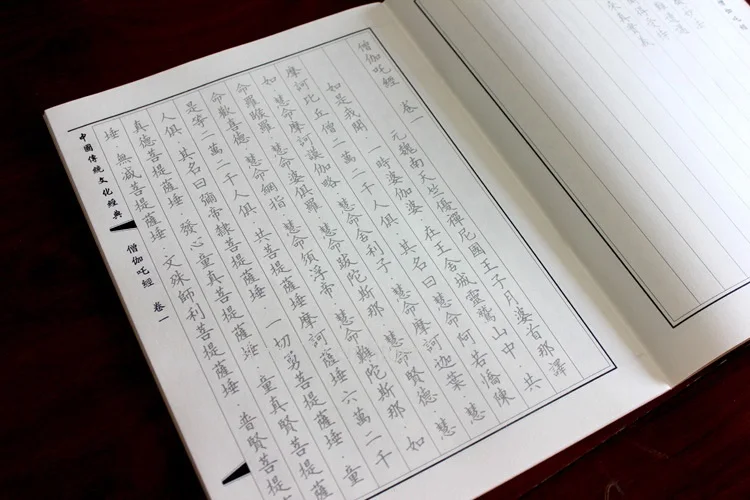 僧伽吒經 卷一
元魏南天竺優禪尼國王子月婆首那譯
如是我聞·一時婆伽婆·在王舍城靈鷲山中·共
摩訶比丘僧二萬二千人俱·其名曰慧命阿若憍陳
如·慧命摩訶謨伽略·慧命舍利子·慧命摩訶迦葉·慧
命羅睺羅·慧命婆俱羅·慧命跋陀斯那·慧命賢德·慧
命歡喜德·慧命網指·慧命須浮帝·慧命難陀斯那·如
是等二萬二千人俱·共菩提薩埵摩訶薩埵六萬二千
人俱·其名曰彌帝隸菩提薩埵·一切勇菩提薩埵·童
真德菩提薩埵·發心童真菩提薩埵·童真賢菩提薩
埵·無減菩提薩埵·文殊師利菩提薩埵·普賢菩提
中國傳統文化經典
僧伽吒經 卷一